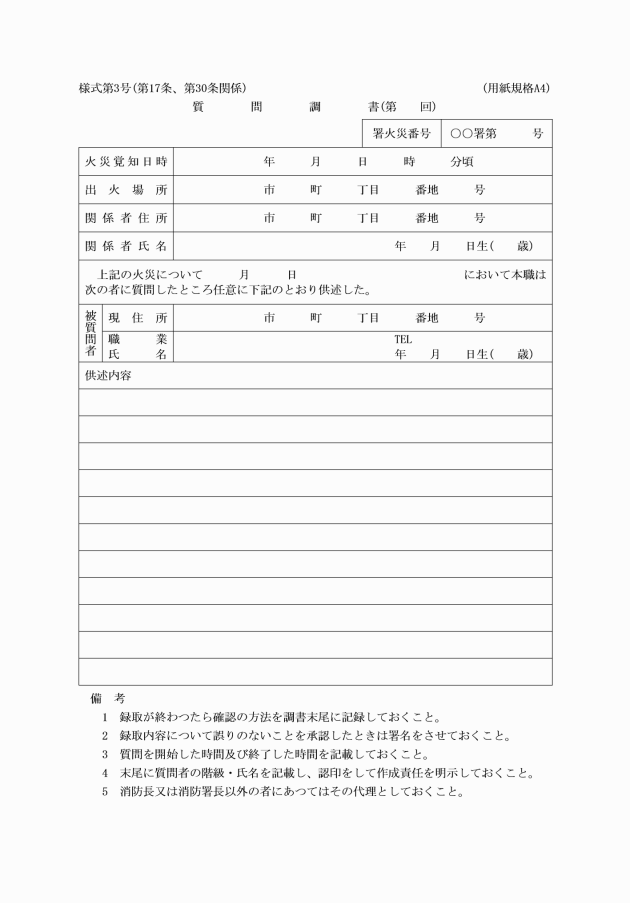 様式第3号(第17条、第30条関係) (用紙規格A4)
質 問 調 書(第 回)
署火災番号 〇〇署第 号
火災覚知日時 年 月 日 時 分頃
出火場所 市 町 丁目 番地 号
関係者住所 市 町 丁目 番地 号
関係者氏名 年 月 日生( 歳)
上記の火災について 月 日 において本職は
次の者に質問したところ任意に下記のとおり供述した。
被質問者 現住所 市 町 丁目 番地 号
職業 TEL
氏名 年 月 日生( 歳)
供述内容
備 考
1 録取が終わつたら確認の方法を調書末尾に記録しておくこと。
2 録取内容について誤りのないことを承認したときは署名をさせておくこと。
3 質問を開始した時間及び終了した時間を記載しておくこと。
4 末尾に質問者の階級・氏名を記載し、認印をして作成責任を明示しておくこと。
5 消防長又は消防署長以外の者にあつてはその代理としておくこと。